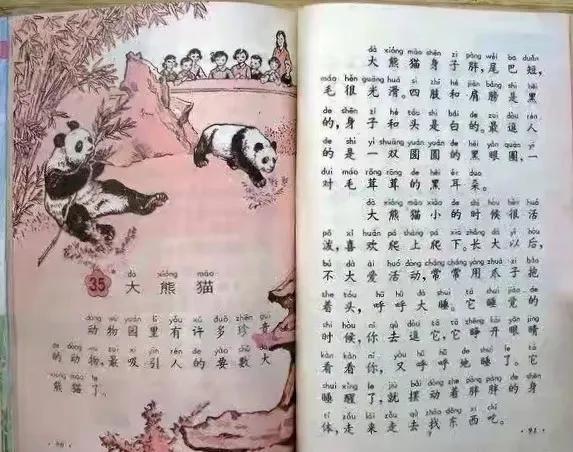 dà xióng māo
35 大熊猫
dòng wù yuán lǐ yǒu xǔ duō zhēn qí
动物园里有许多珍奇
de dòng wù zuì xī yǐn rén de yào shǔ dà
的动物,最吸引人的要数大
xióng māo le
熊猫了。
dà xióng māo shēn zi pàng wěi ba duǎn
大熊猫身子胖,尾巴短,
máo hěn guāng huá sì zhī hé jiān bǎng shì hēi
毛很光滑。四肢和肩膀是黑
de shēn zi hé tóu shì bái de zuì dòu rén
的,身子和头是白的。最逗人
de shì yì shuāng yuán yuán de hēi yǎn quān yí
的是一双圆圆的黑眼圈,一
duì máo róng róng de hēi ěr duo
对毛茸茸的黑耳朵。
dà xióng māo xiǎo de shí hou hěn huó
大熊猫小的时候很活
pō xǐ huān pá shàng pá xià zhǎng dà yǐ hòu
泼,喜欢爬上爬下。长大以后,
bú dà ài huó dòng cháng cháng yòng zhuǎ zi bào
不大爱活动,常常用爪子抱
zhe tóu hū hū dà shuì tā shuì jiào de
着头,呼呼大睡。它睡觉的
shí hòu nǐ qù dòu tā tā zhēng kāi yǎn jīng
时候,你去逗它,它睁开眼睛
kàn kàn nǐ yòu hū hū de shuì le tā
看看你,又呼呼地睡了。它
shuì xǐng le jiù bǎi dòng zhe pàng pàng de shēn
睡醒了,就摆动着胖胖的身
tǐ zǒu lái zǒu qù zhǎo dōng xi chī
体,走来走去找东西吃。
· 91 ·